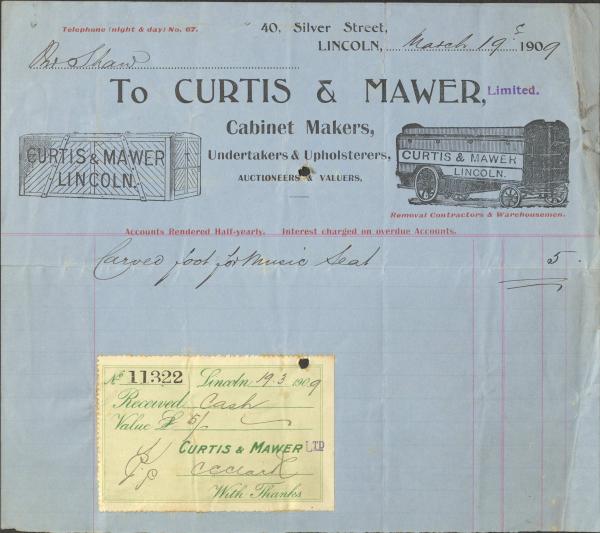 Telephone (night & day) No. 67.
40, Silver Street,
LINCOLN, March 19th 1909
Dr Shaw
To CURTIS & MAWER, Limited.
Cabinet Makers,
Undertakers & Upholsterers,
AUCTIONEERS & VALUERS,
CURTIS & MAWER
LINCOLN.
CURTIS & MAWER
LINCOLN.
Removal Contractors & Warehousemen.
Accounts Rendered Half-yearly. Interest charged on overdue Accounts.
Carved foot for Music Seat 5 .
No 11322 Lincoln 19.3.1909
Received Cash
Value £ 5/
CURTIS & MAWER LTD
With Thanks